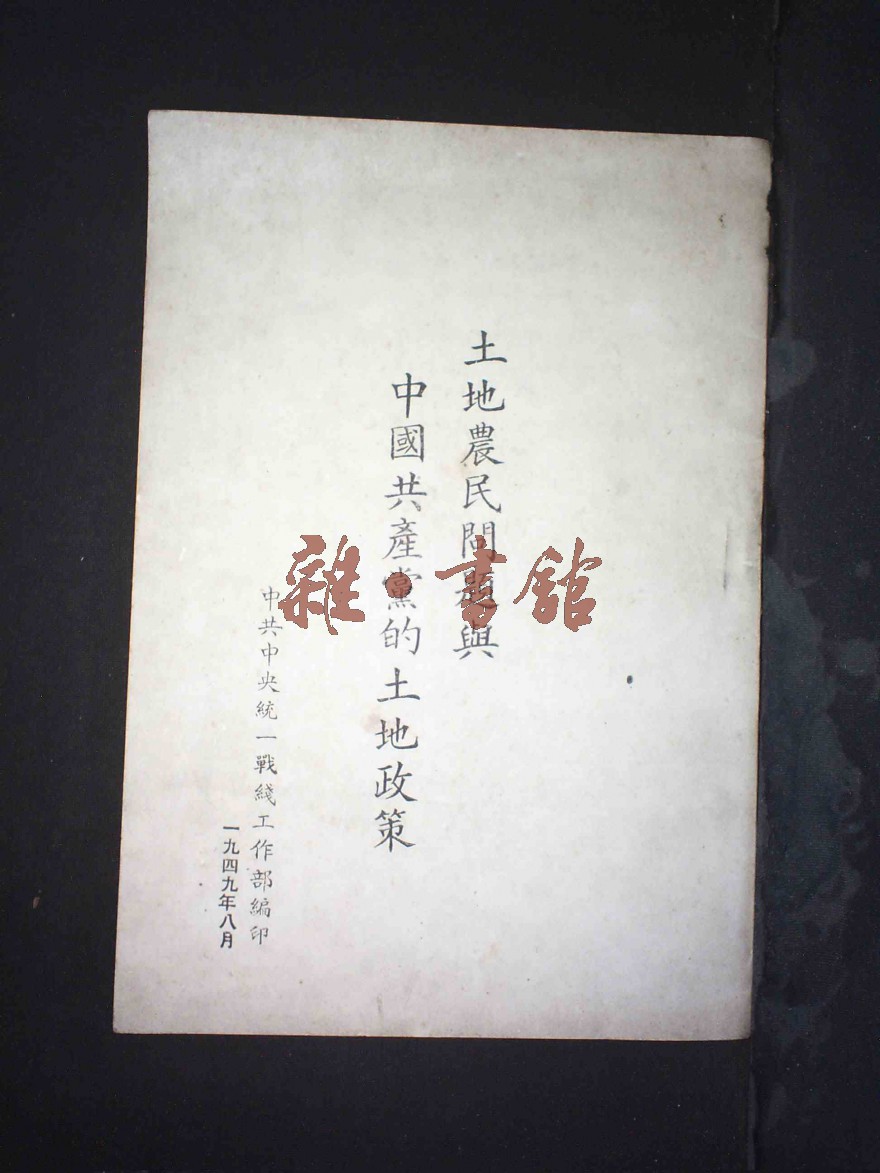 土地農民問題與
中國共產黨的土地政策
中共中央統一戰綫工作部編印
一九四九年八月
雜·書館